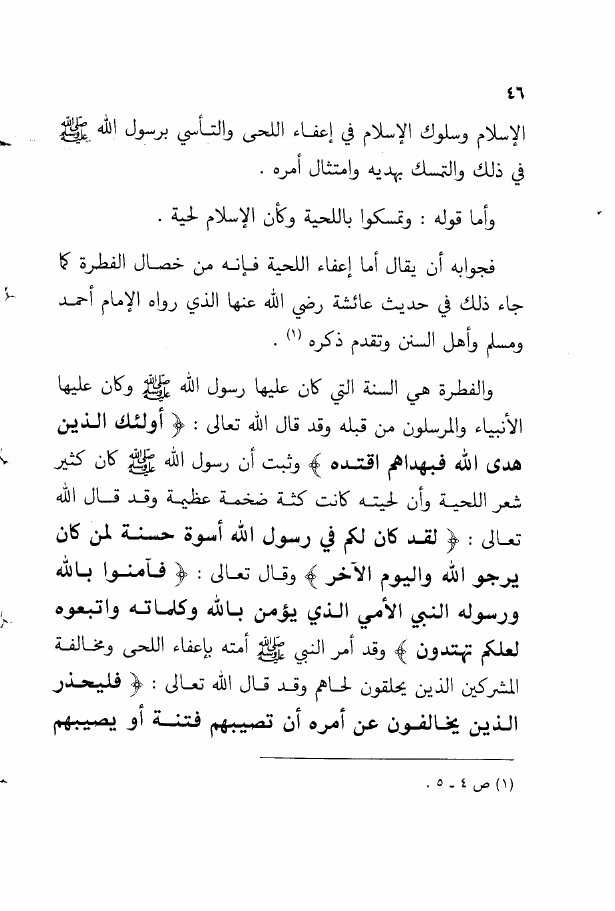 ٤٦
الإسلام وسلوك الإسلام في إعفاء اللحى والتأسي برسول الله ﷺ
في ذلك والتمسك بهديه وامتثال أمره .
وأما قوله : وتمسكوا باللحية وكأن الإسلام لحية .
فجوابه أن يقال أما إعفاء اللحية فإنه من خصال الفطرة كما
جاء ذلك في حديث عائشة رضي الله عنها الذي رواه الإمام أحمد
ومسلم وأهل السنن وتقدم ذكره (١) .
والفطرة هي السنة التي كان عليها رسول الله ﷺ وكان عليها
الأنبياء والمرسلون من قبله وقد قال الله تعالى : ﴿ أولئك الذين
هدى الله فبهداهم اقتده ﴾ وثبت أن رسول الله ﷺ كان كثير
شعر اللحية وأن لحيته كانت كثة ضخمة عظيمة وقد قال الله
تعالى : ﴿ لقد كان لكم في رسول الله أسوة حسنة لمن كان
يرجو الله واليوم الآخر ﴾ وقال تعالى : ﴿ فآمنوا بالله
ورسوله النبي الأمي الذي يؤمن بالله وكلماته واتبعوه
لعلكم تهتدون ﴾ وقد أمر النبي ﷺ أمته بإعفاء اللحى ومخالفة
المشركين الذين يحلقون لحاهم وقد قال الله تعالى : ﴿ فليحذر
الذين يخالفون عن أمره أن تصيبهم فتنة أو يصيبهم
(١) ص ٤ ـ ٥ .